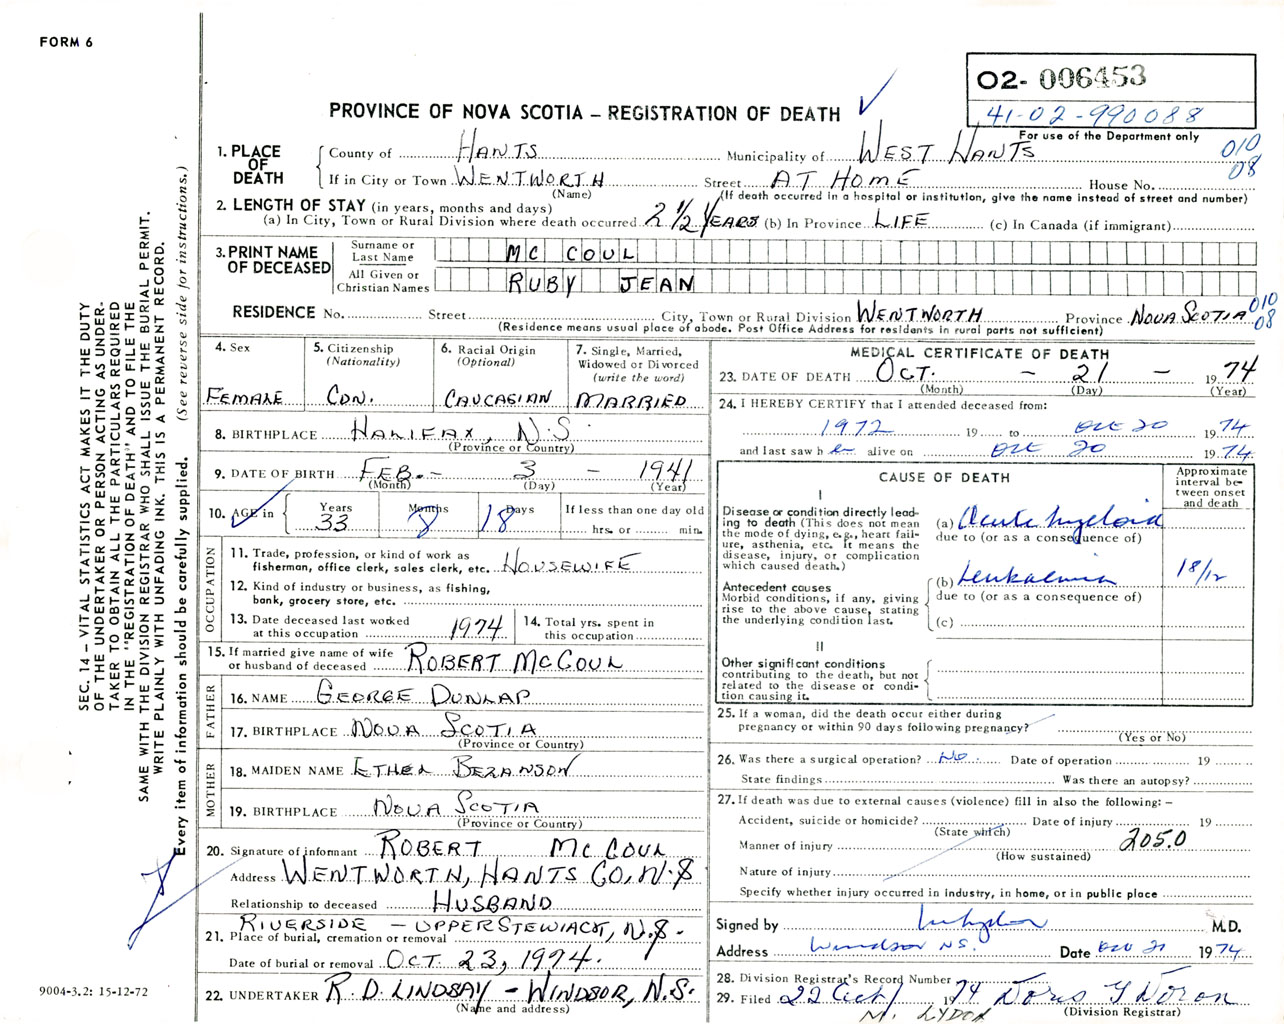 FORM 6
02-006453
41-02-990088
For use of the Department only
PROVINCE OF NOVA SCOTIA – REGISTRATION OF DEATH
010
08
1. PLACE OF DEATH
County of HANTS Municipality of WEST HANTS
If in City or Town WENTWORTH Street AT HOME House No.
(Name) (If death occurred in a hospital or institution, give the name instead of street and number)
2. LENGTH OF STAY (in years, months and days)
(a) In City, Town or Rural Division where death occurred 2 1/2 YEARS (b) In Province LIFE (c) In Canada (if immigrant)
3. PRINT NAME OF DECEASED
Surname or Last Name MC COUL
All Given or Christian Names RUBY JEAN
RESIDENCE No. Street City, Town or Rural Division WENTWORTH Province NOVA SCOTIA 010 08
(Residence means usual place of abode. Post Office Address for residents in rural parts not sufficient)
4. Sex FEMALE
5. Citizenship (Nationality) CDN.
6. Racial Origin (Optional) CAUCASIAN
7. Single, Married, Widowed or Divorced (write the word) MARRIED
8. BIRTHPLACE HALIFAX, N.S.
(Province or Country)
9. DATE OF BIRTH FEB. – 3 – 1941
(Month) (Day) (Year)
10. AGE in Years 33 Months 8 Days 18 If less than one day old hrs. or min.
OCCUPATION
11. Trade, profession, or kind of work as
fisherman, office clerk, sales clerk, etc. HOUSEWIFE
12. Kind of industry or business, as fishing,
bank, grocery store, etc.
13. Date deceased last worked
at this occupation 1974
14. Total yrs. spent in
this occupation
15. If married give name of wife
or husband of deceased ROBERT MCCOUL
FATHER
16. NAME GEORGE DUNLAP
17. BIRTHPLACE NOVA SCOTIA
(Province or Country)
MOTHER
18. MAIDEN NAME ETHEL BEZANSON
19. BIRTHPLACE NOVA SCOTIA
(Province or Country)
20. Signature of informant ROBERT MC COUL
Address WENTWORTH, HANTS CO, N.S
Relationship to deceased HUSBAND
RIVERSIDE – UPPER STEWIACK, N.S.
21. Place of burial, cremation or removal
Date of burial or removal OCT. 23, 1974.
22. UNDERTAKER R. D. LINDSAY – WINDSOR, N.S.
(Name and address)
MEDICAL CERTIFICATE OF DEATH
23. DATE OF DEATH OCT. – 21 – 1974
(Month) (Day) (Year)
24. I HEREBY CERTIFY that I attended deceased from:
1972 19 to 20 1974
and last saw h er alive on 20 1974
CAUSE OF DEATH
Approximate interval between onset and death
I
Disease or condition directly leading to death (This does not mean the mode of dying, e.g., heart failure, asthenia, etc. It means the disease, injury, or complication which caused death.)
(a) Acute Myeloid
due to (or as a consequence of)
Antecedent causes
Morbid conditions, if any, giving rise to the above cause, stating the underlying condition last.
(b) Leukaemia 18/12
due to (or as a consequence of)
(c)
II
Other significant conditions
contributing to the death, but not related to the disease or condition causing it.
25. If a woman, did the death occur either during
pregnancy or within 90 days following pregnancy?
(Yes or No)
26. Was there a surgical operation? No Date of operation 19
State findings Was there an autopsy?
27. If death was due to external causes (violence) fill in also the following: –
Accident, suicide or homicide? Date of injury 19
(State which)
Manner of injury 205.0
(How sustained)
Nature of injury
Specify whether injury occurred in industry, in home, or in public place
Signed by M.D.
Address Windsor N.S. Date 21 1974
28. Division Registrar's Record Number
29. Filed 22 1974 Doris
(Division Registrar)
M. LYDON
SEC. 14 – VITAL STATISTICS ACT MAKES IT THE DUTY
OF THE UNDERTAKER OR PERSON ACTING AS UNDER-
TAKER TO OBTAIN ALL THE PARTICULARS REQUIRED
IN THE "REGISTRATION OF DEATH" AND TO FILE THE
SAME WITH THE DIVISION REGISTRAR WHO SHALL ISSUE THE BURIAL PERMIT.
WRITE PLAINLY WITH UNFADING INK. THIS IS A PERMANENT RECORD.
Every item of information should be carefully supplied. (See reverse side for instructions.)
9004-3.2: 15-12-72